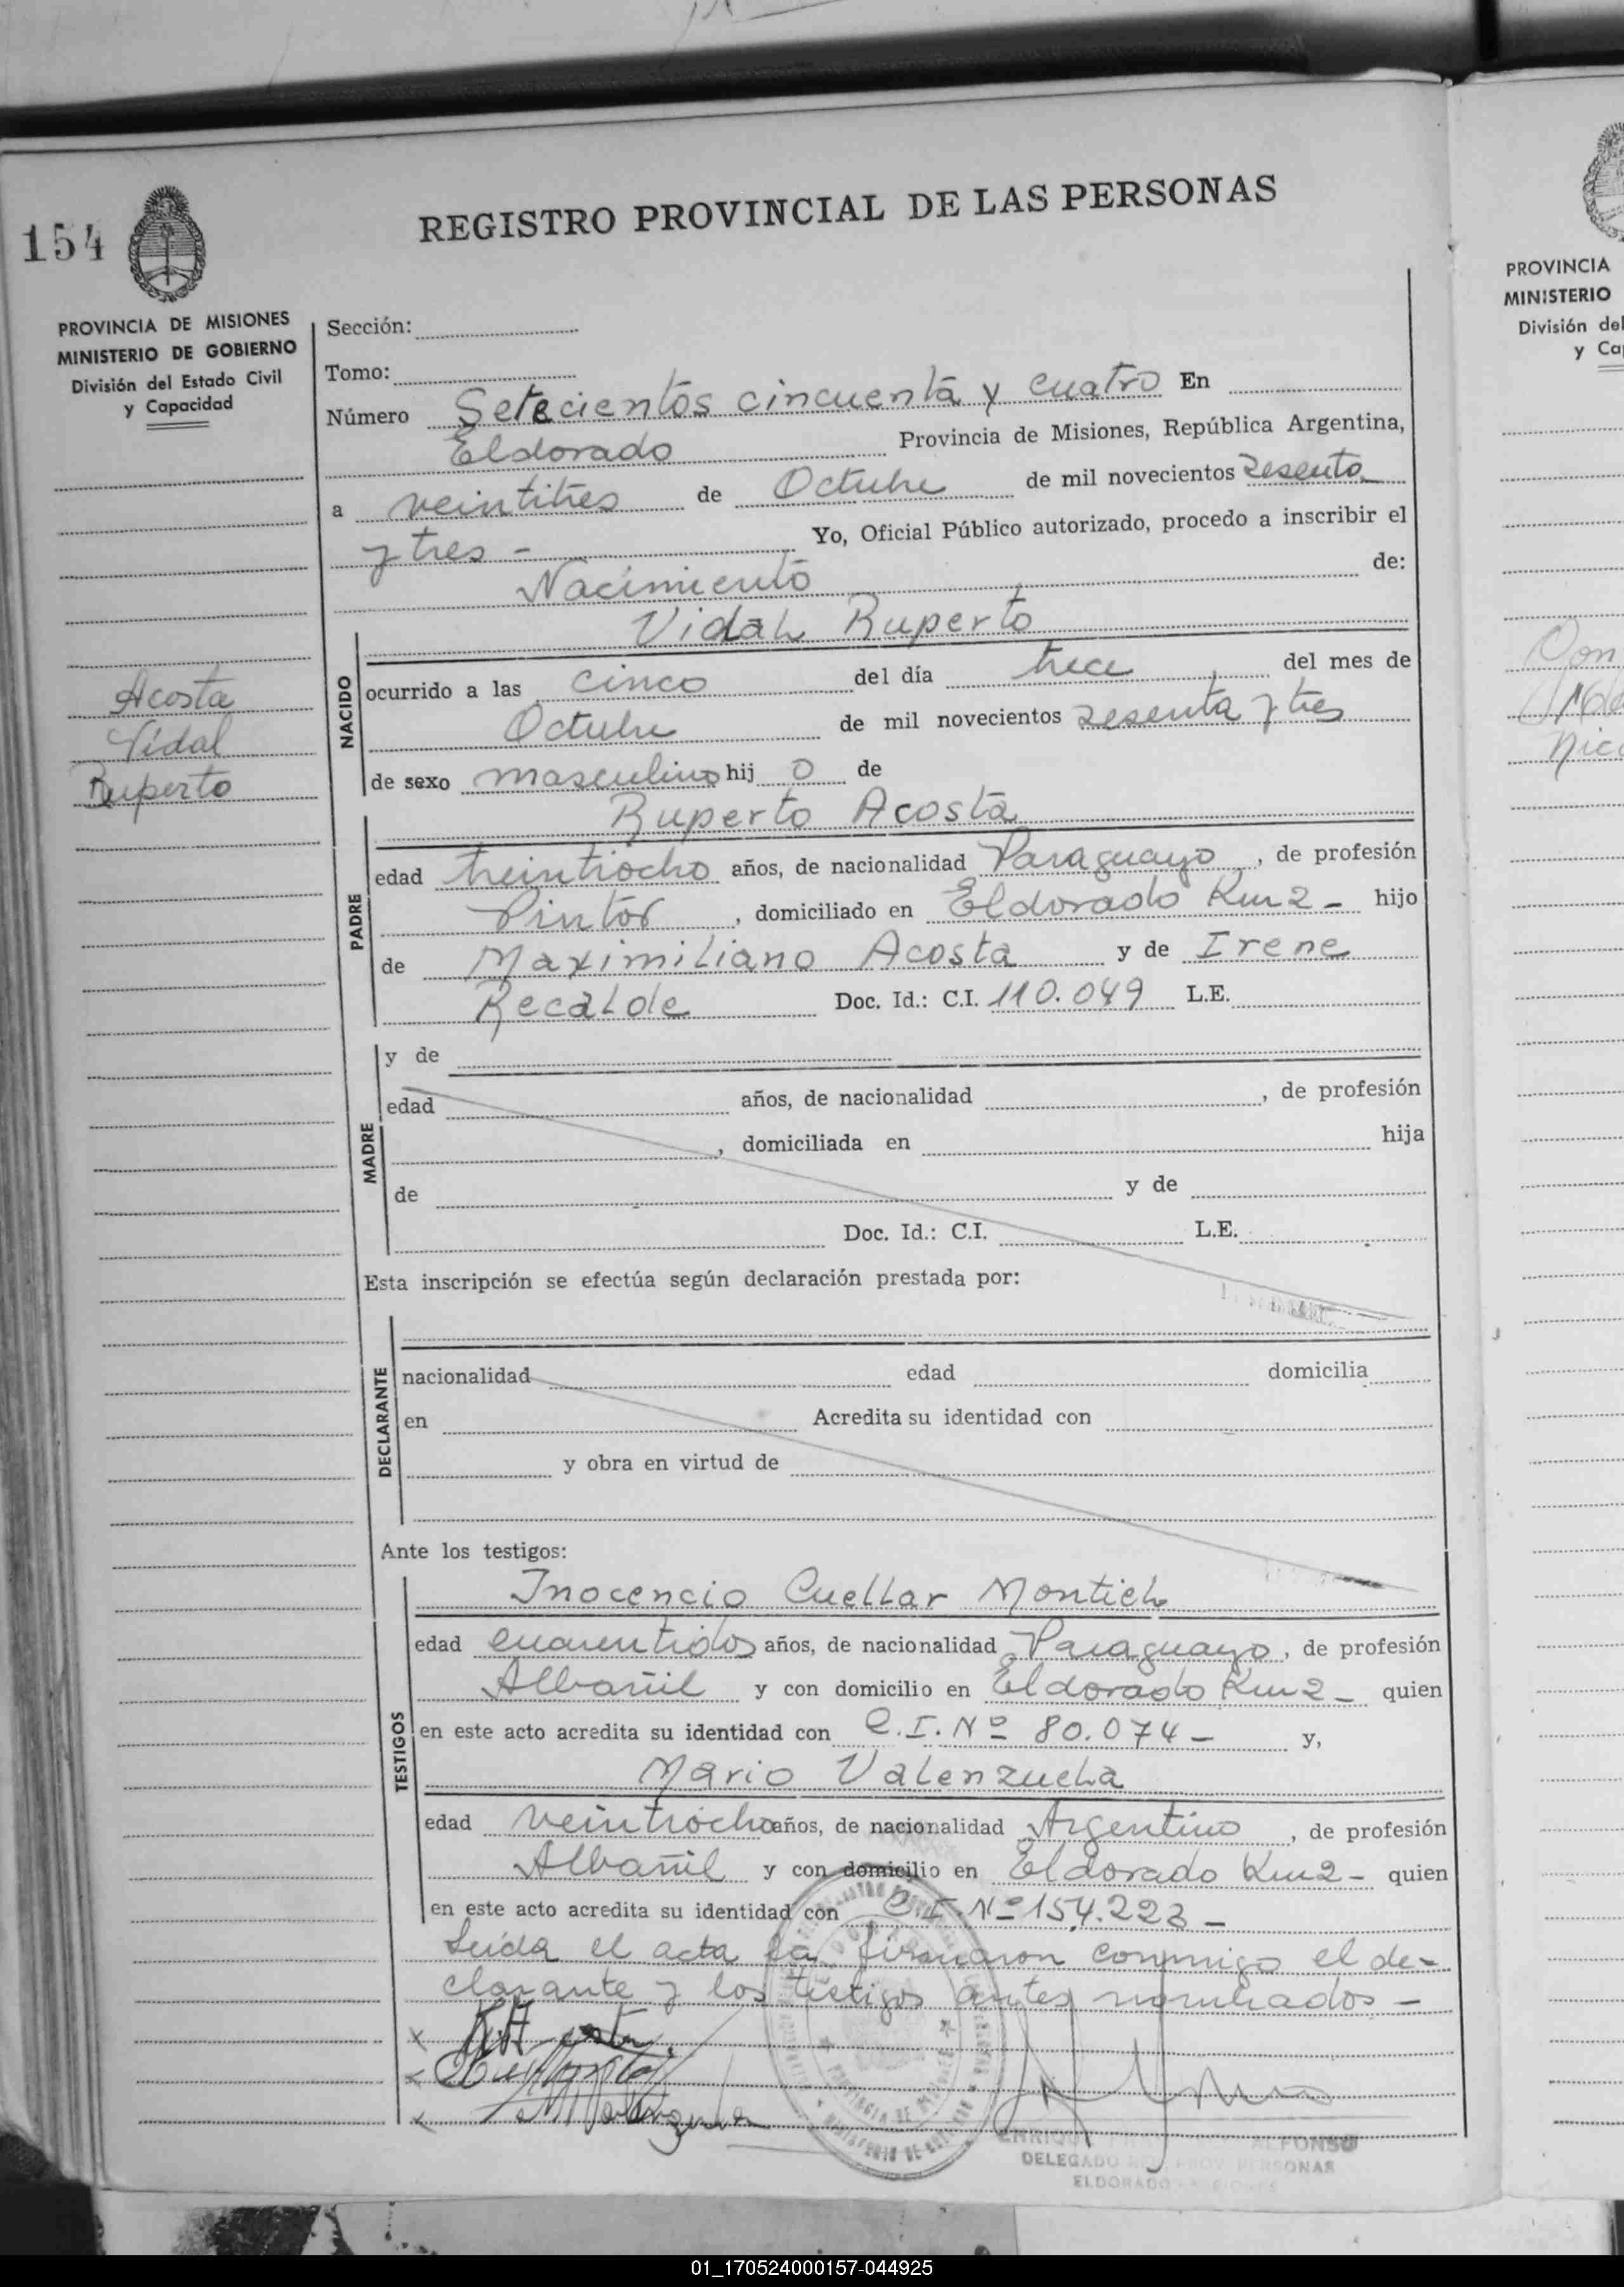 154
REGISTRO PROVINCIAL DE LAS PERSONAS
PROVINCIA DE MISIONES
MINISTERIO DE GOBIERNO
División del Estado Civil
y Capacidad
Acosta
Vidal
Ruperto
Sección:
Tomo:
Número Setecientos cincuenta y cuatro En
Eldorado Provincia de Misiones, República Argentina,
a veintitres de Octubre de mil novecientos sesenta
y tres - Yo, Oficial Público autorizado, procedo a inscribir el
Nacimiento de:
Vidal Ruperto
NACIDO
ocurrido a las cinco del día trece del mes de
Octubre de mil novecientos sesenta y tres
de sexo masculino hij o de
Ruperto Acosta
PADRE
edad treintiocho años, de nacionalidad Paraguayo, de profesión
Pintor, domiciliado en Eldorado Km 2 - hijo
de Maximiliano Acosta y de Irene
Recalde Doc. Id.: C.I. 110.049 L.E.
MADRE
y de
edad años, de nacionalidad , de profesión
, domiciliada en hija
de y de
Doc. Id.: C.I. L.E.
Esta inscripción se efectúa según declaración prestada por:
DECLARANTE
nacionalidad edad domicilia
en Acredita su identidad con
y obra en virtud de
Ante los testigos:
TESTIGOS
Inocencio Cuellar Montiel
edad cuarentidos años, de nacionalidad Paraguayo, de profesión
Albañil y con domicilio en Eldorado Km 2 - quien
en este acto acredita su identidad con C.I. Nº 80.074 - y,
Mario Valenzuela
edad veintiocho años, de nacionalidad Argentino, de profesión
Albañil y con domicilio en Eldorado Km 2 - quien
en este acto acredita su identidad con C.I. Nº 154.223 -
Leida el acta la firmaron conmigo el de-
clarante y los testigos antes nombrados -
ALFONSO
DELEGADO PERSONAS
ELDORADO
PROVINCIA
MINISTERIO
División del
y Ca
01_170524000157-044925